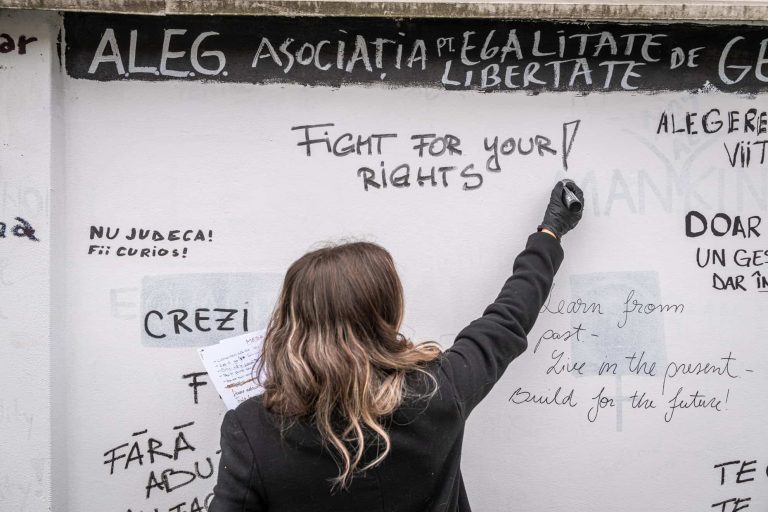 A.L.E.G. ASOCIAȚIA PT. EGALITATE DE GE
LIBERTATE
FIGHT FOR YOUR!
RIGHTS
ALEGERE
VIIT
MANKIN
NU JUDECA!
FII CURIOS!
DOAR
UN GES
DAR ÎN
CREZI
Learn from
past -
Live in the present -
Build for the future!
F
FĂRĂ
ABU
TE
TE